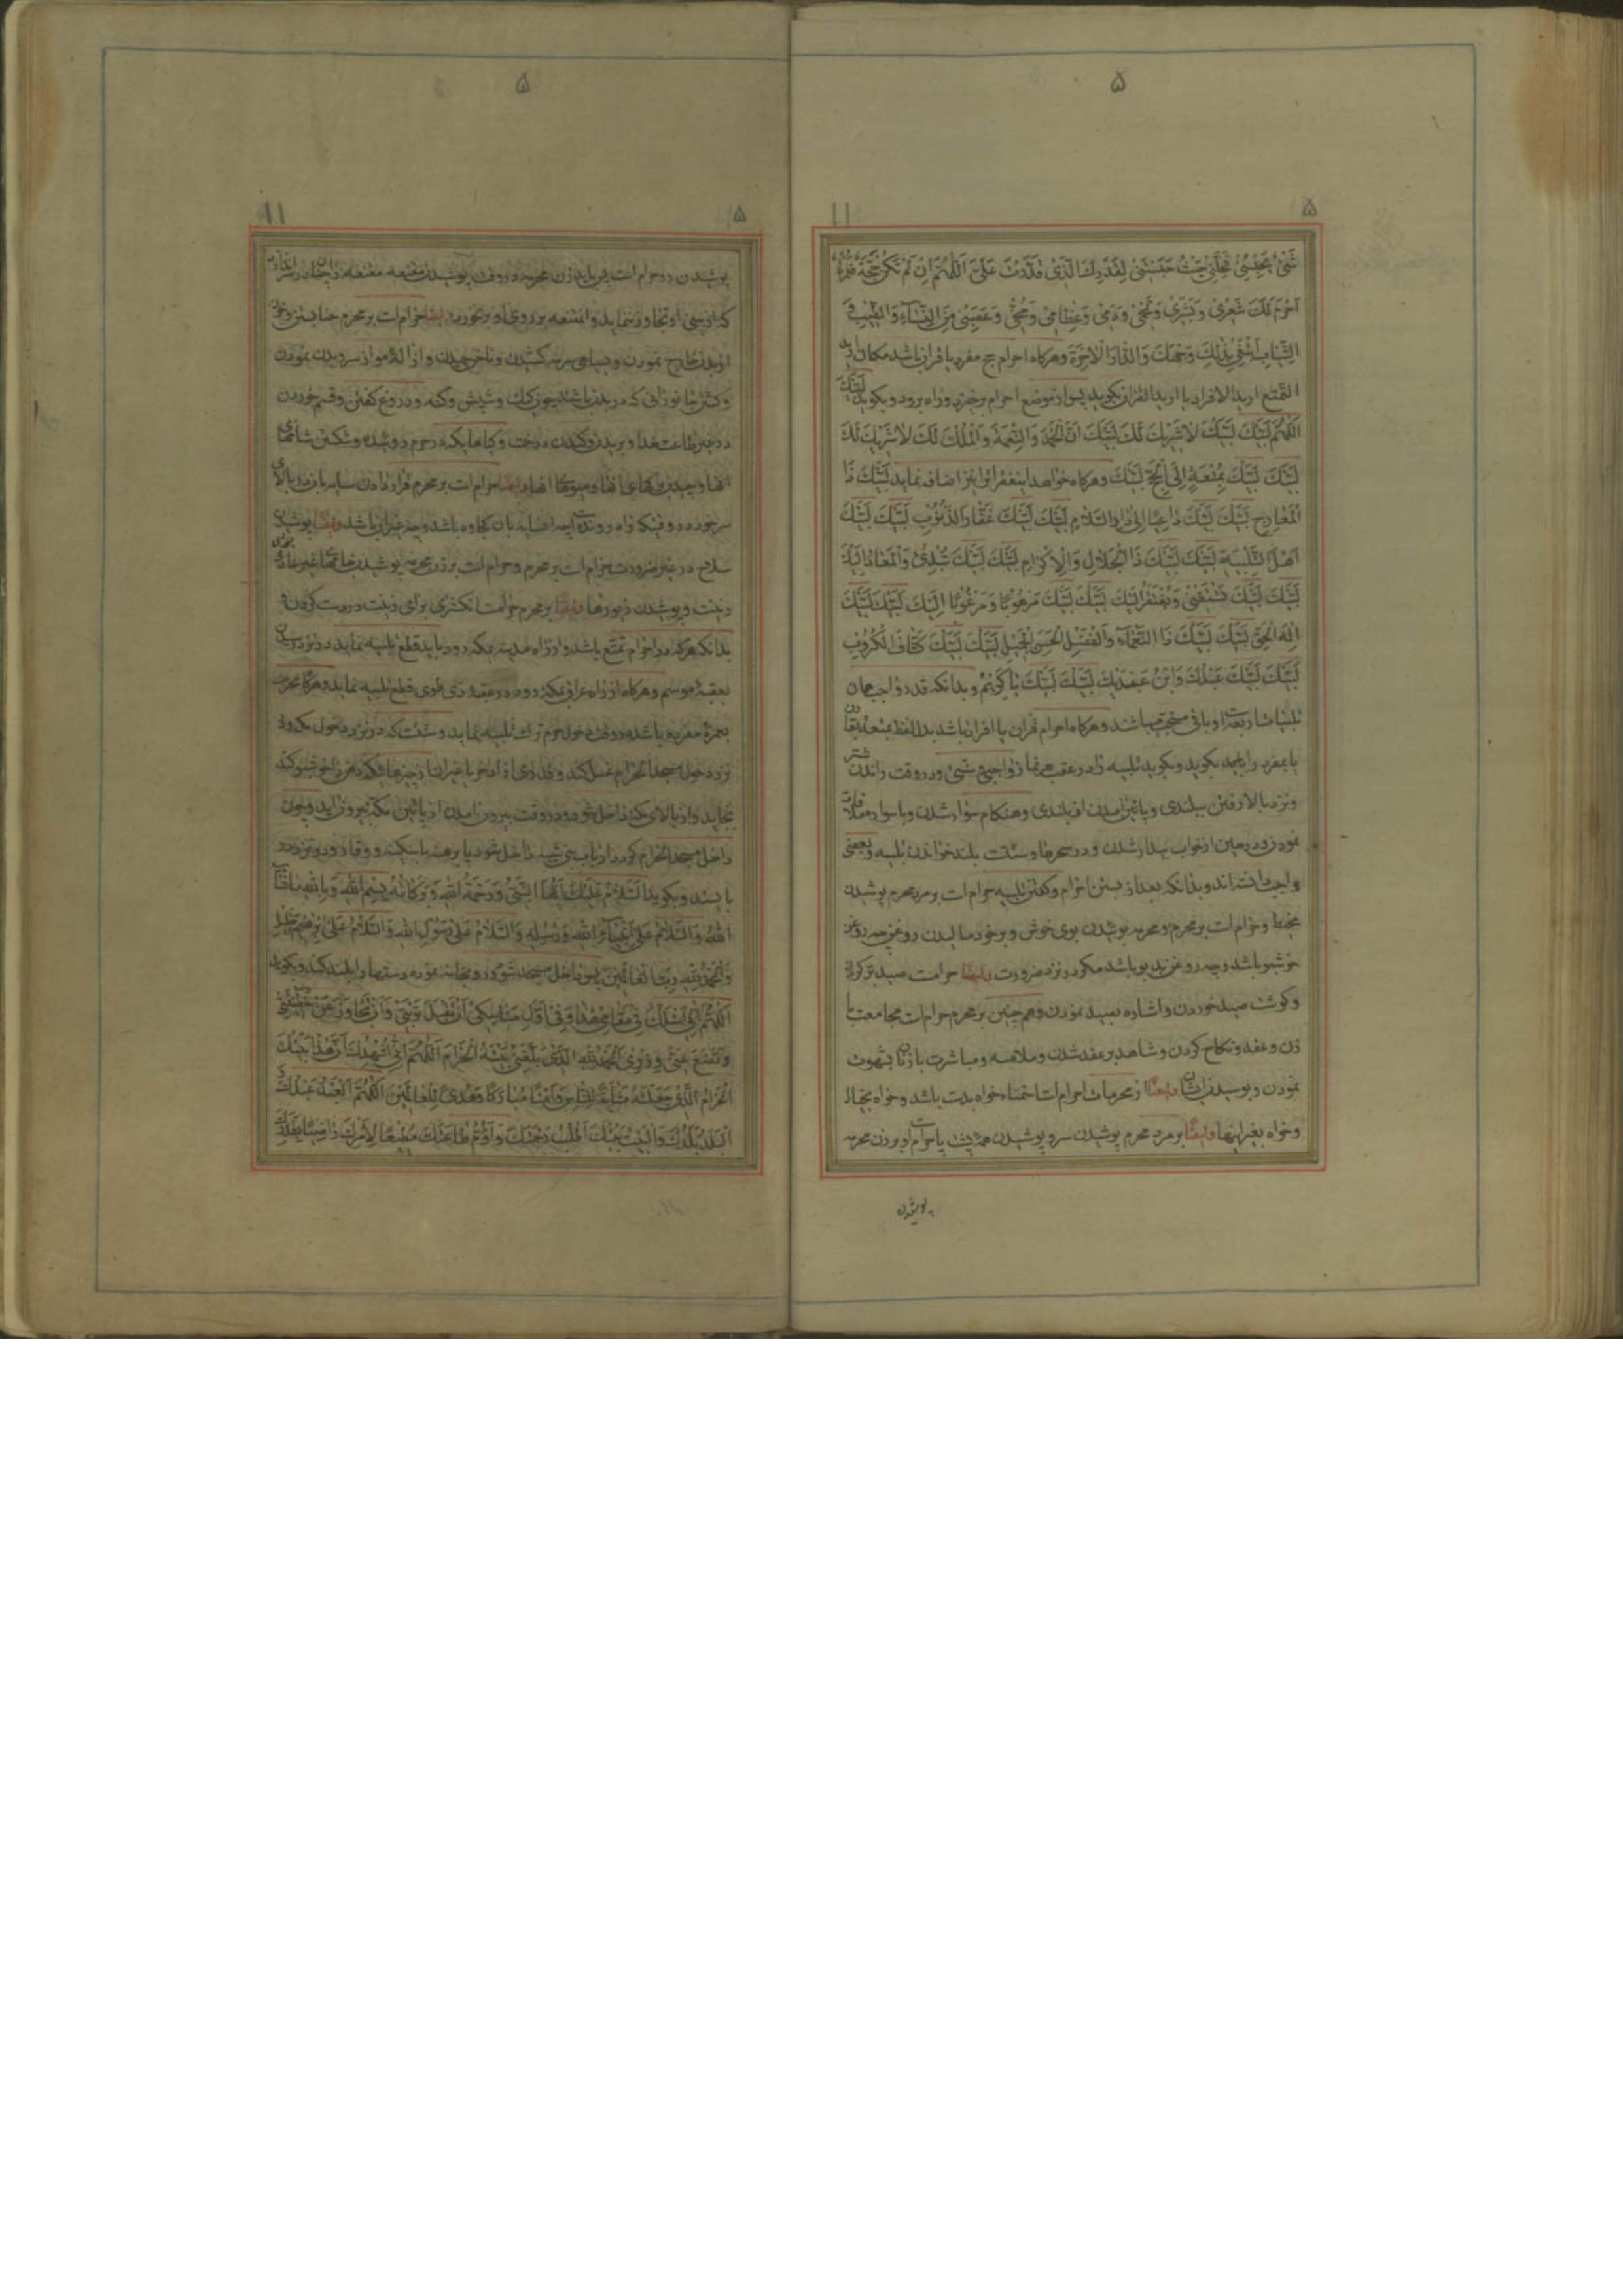 ۵
۱۱ ۵
شَیْءٌ یَحْبِسُنِی فَحُلَّنِی حَیْثُ حَبَسْتَنِی لِقَدَرِكَ الَّذِی قَدَّرْتَ عَلَیَّ اَللّٰهُمَّ اِنْ لَمْ تَكُنْ حَجَّةً فَعُمْرَةً
اَحْرَمَ لَكَ شَعْرِی وَبَشَرِی وَلَحْمِی وَدَمِی وَعِظَامِی وَمُخِّی وَعَصَبِی مِنَ النِّسَاءِ وَالطِّیبِ وَ
الثِّیَابِ اَبْتَغِی بِذٰلِكَ وَجْهَكَ وَالدَّارَ الْاٰخِرَةَ وهركاه احرام حج مفرد یا قران باشد مكان ارید
التمتع ارید الافراد یا ارید القران بكوید پس از موضع احرام برخیزد و راه برود و بكوید لَبَّیْكَ
اَللّٰهُمَّ لَبَّیْكَ لَبَّیْكَ لَا شَرِیكَ لَكَ لَبَّیْكَ اِنَّ الْحَمْدَ وَالنِّعْمَةَ وَالْمُلْكَ لَكَ لَا شَرِیكَ لَكَ
لَبَّیْكَ لَبَّیْكَ بِمُتْعَةٍ اِلَی الْحَجِّ لَبَّیْكَ وهركاه خواهد اینفقرات را نیز اضافه نماید لَبَّیْكَ ذَا
الْمَعَارِجِ لَبَّیْكَ لَبَّیْكَ دَاعِیًا اِلٰی دَارِ السَّلَامِ لَبَّیْكَ لَبَّیْكَ غَفَّارَ الذُّنُوبِ لَبَّیْكَ لَبَّیْكَ
اَهْلَ التَّلْبِیَةِ لَبَّیْكَ لَبَّیْكَ ذَا الْجَلَالِ وَالْاِكْرَامِ لَبَّیْكَ لَبَّیْكَ تُبْدِئُ وَالْمَعَادُ اِلَیْكَ
لَبَّیْكَ لَبَّیْكَ تَسْتَغْنِی وَیُفْتَقَرُ اِلَیْكَ لَبَّیْكَ لَبَّیْكَ مَرْهُوبًا وَمَرْغُوبًا اِلَیْكَ لَبَّیْكَ لَبَّیْكَ
اِلٰهَ الْحَقِّ لَبَّیْكَ لَبَّیْكَ ذَا النَّعْمَاءِ وَالْفَضْلِ الْحَسَنِ الْجَمِیلِ لَبَّیْكَ لَبَّیْكَ كَشَّافَ الْكُرُوبِ
لَبَّیْكَ لَبَّیْكَ عَبْدُكَ وَابْنُ عَبْدَیْكَ لَبَّیْكَ لَبَّیْكَ یَا كَرِیمُ و بدانكه قدر واجب همان
تلبیات اربعه است و باقی مستحب میباشند وهركاه احرام قران یا افراد باشد بدل لفظ بمتعة بقران
یا بمفرد را بالحج بكوید و بكوید تلبیه را در عقب هر نماز واجبی و سنتی و در وقت راندن شتر
و نزد بالا رفتن ببلندی و پائین آمدن از بلندی و هنكام سوار شدن و با سواره ملاقات
نمودن و در حین از خواب بیدار شدن و در سحرها و سنت است بلند خواندن تلبیه و بعضی
واجب دانسته اند و بدانكه بعد از بستن احرام و كفتن تلبیه حرام است بر مرد محرم پوشیدن
مخیط و حرام است بر محرم و محرمه بوئیدن بوی خوش و بر خود مالیدن روغن چه روغن
خوشبو باشد و چه روغن بد بو باشد مكر در نزد ضرورت وایضا حرامست صید بر كردن
و كوشت صید خوردن و اشاره بصید نمودن و همچنین بر محرم حرام است مجامعت با
زن و عقد و نكاح كردن و شاهد بر عقد شدن و ملامسه و مباشرت با زنان بشهوت
نمودن و بوسیدن ایشان وایضا از محرمات احرام است استمناء خواه بدست باشد و خواه بخیال
و خواه بغیر اینها وایضا بر مرد محرم پوشیدن سر و پوشیدن همه پشت پا حرام است و بر زن محرمه
پوشیدن
۵
۱۱ ۵
پوشیدن رو حرام است پس باید زن محرمه در وقت پوشیدن مقنعه مقنعه را چنان بر سر اندازد
كه از بینی او تجاوز ننماید و المقنعه بر روی او بر نخورد وایضا حرام است بر محرم حنا بستن و خون
از بدن خارج نمودن و بسیاهی سرمه كشیدن و ناخن چیدن و ازاله مو از سر و بدن نمودن
و كشتن جانورانی كه در بدن باشند چون كك و شپش و كنه و دروغ كفتن و قسم خوردن
در غیر طاعت خدا و بریدن و كندن درخت و كیاهها یكه در حرم روئیده و شكستن شاخهای
انها و چیدن بركهای انها و میوهای انها وایضا حرام است بر محرم قرار دادن سایه بان در بالای
سر خود در وقتیكه راه رونده است چه ان سایه بان كجاوه باشد و چه غیر ان باشد وایضا پوشیدن
سلاح در غیر ضرورت حرام است بر محرم و حرام است بر زن محرمه پوشیدن جامهای غیر عادی
زینت و پوشیدن زیورها وایضا بر محرم حرامست انكشتری برای زینت در دست كردن و
بدانكه هركه در احرام تمتع باشد و از راه مدینه بمكه رود باید قطع تلبیه نماید در نزد رسیدن
بعقبه موسم وهركاه از راه عراق بمكه رود در عقبه ذی طوی قطع تلبیه نماید وهركاه محرم
بعمره مفرده باشد در وقت دخول حرم ترك تلبیه نماید و سنت است كه در نزد دخول مكه و در
نزد دخول مسجد الحرام غسل كند و قدری از اذخر یا غیر ان از چیزهائیكه دهن را خوشبو كند
بخاید و از بالای مكه داخل شود و در وقت بیرون امدن از پائین مكه بیرون اید و چون
داخل مسجد الحرام كردد از باب بنی شیبه داخل شود پا برهنه با سكینه و وقار و در نزد در
بایستد و بكوید اَلسَّلَامُ عَلَیْكَ اَیُّهَا النَّبِیُّ وَرَحْمَةُ اللهِ وَبَرَكَاتُهُ بِسْمِ اللهِ وَبِاللهِ مَا شَاءَ
اللهُ وَالسَّلَامُ عَلٰی اَنْبِیَاءِ اللهِ وَرُسُلِهِ وَالسَّلَامُ عَلٰی رَسُولِ اللهِ وَالسَّلَامُ عَلٰی اِبْرٰهِیمَ خَلِیلِ اللهِ
وَالْحَمْدُ لِلهِ رَبِّ الْعَالَمِینَ پس داخل مسجد شود و رو بخانه نموده دستها را بلند كند و بكوید
اَللّٰهُمَّ اِنِّی اَسْئَلُكَ فِی مَقَامِی هٰذَا وَفِی اَوَّلِ مَنَاسِكِی اَنْ تَقْبَلَ تَوْبَتِی وَاَنْ تَجَاوَزَ عَنْ خَطِیئَتِی
وَتَضَعَ عَنِّی وِزْرِی اَلْحَمْدُ لِلهِ الَّذِی بَلَّغَنِی بَیْتَهُ الْحَرَامَ اَللّٰهُمَّ اِنِّی اُشْهِدُكَ اَنَّ هٰذَا بَیْتُكَ
الْحَرَامُ الَّذِی جَعَلْتَهُ مَثَابَةً لِلنَّاسِ وَاَمْنًا مُبَارَكًا وَهُدًی لِلْعَالَمِینَ اَللّٰهُمَّ الْعَبْدُ عَبْدُكَ وَ
الْبَلَدُ بَلَدُكَ وَالْبَیْتُ بَیْتُكَ اَطْلُبُ رَحْمَتَكَ وَاَؤُمُّ طَاعَتَكَ مُطِیعًا لِاَمْرِكَ رَاضِیًا بِقَدَرِكَ